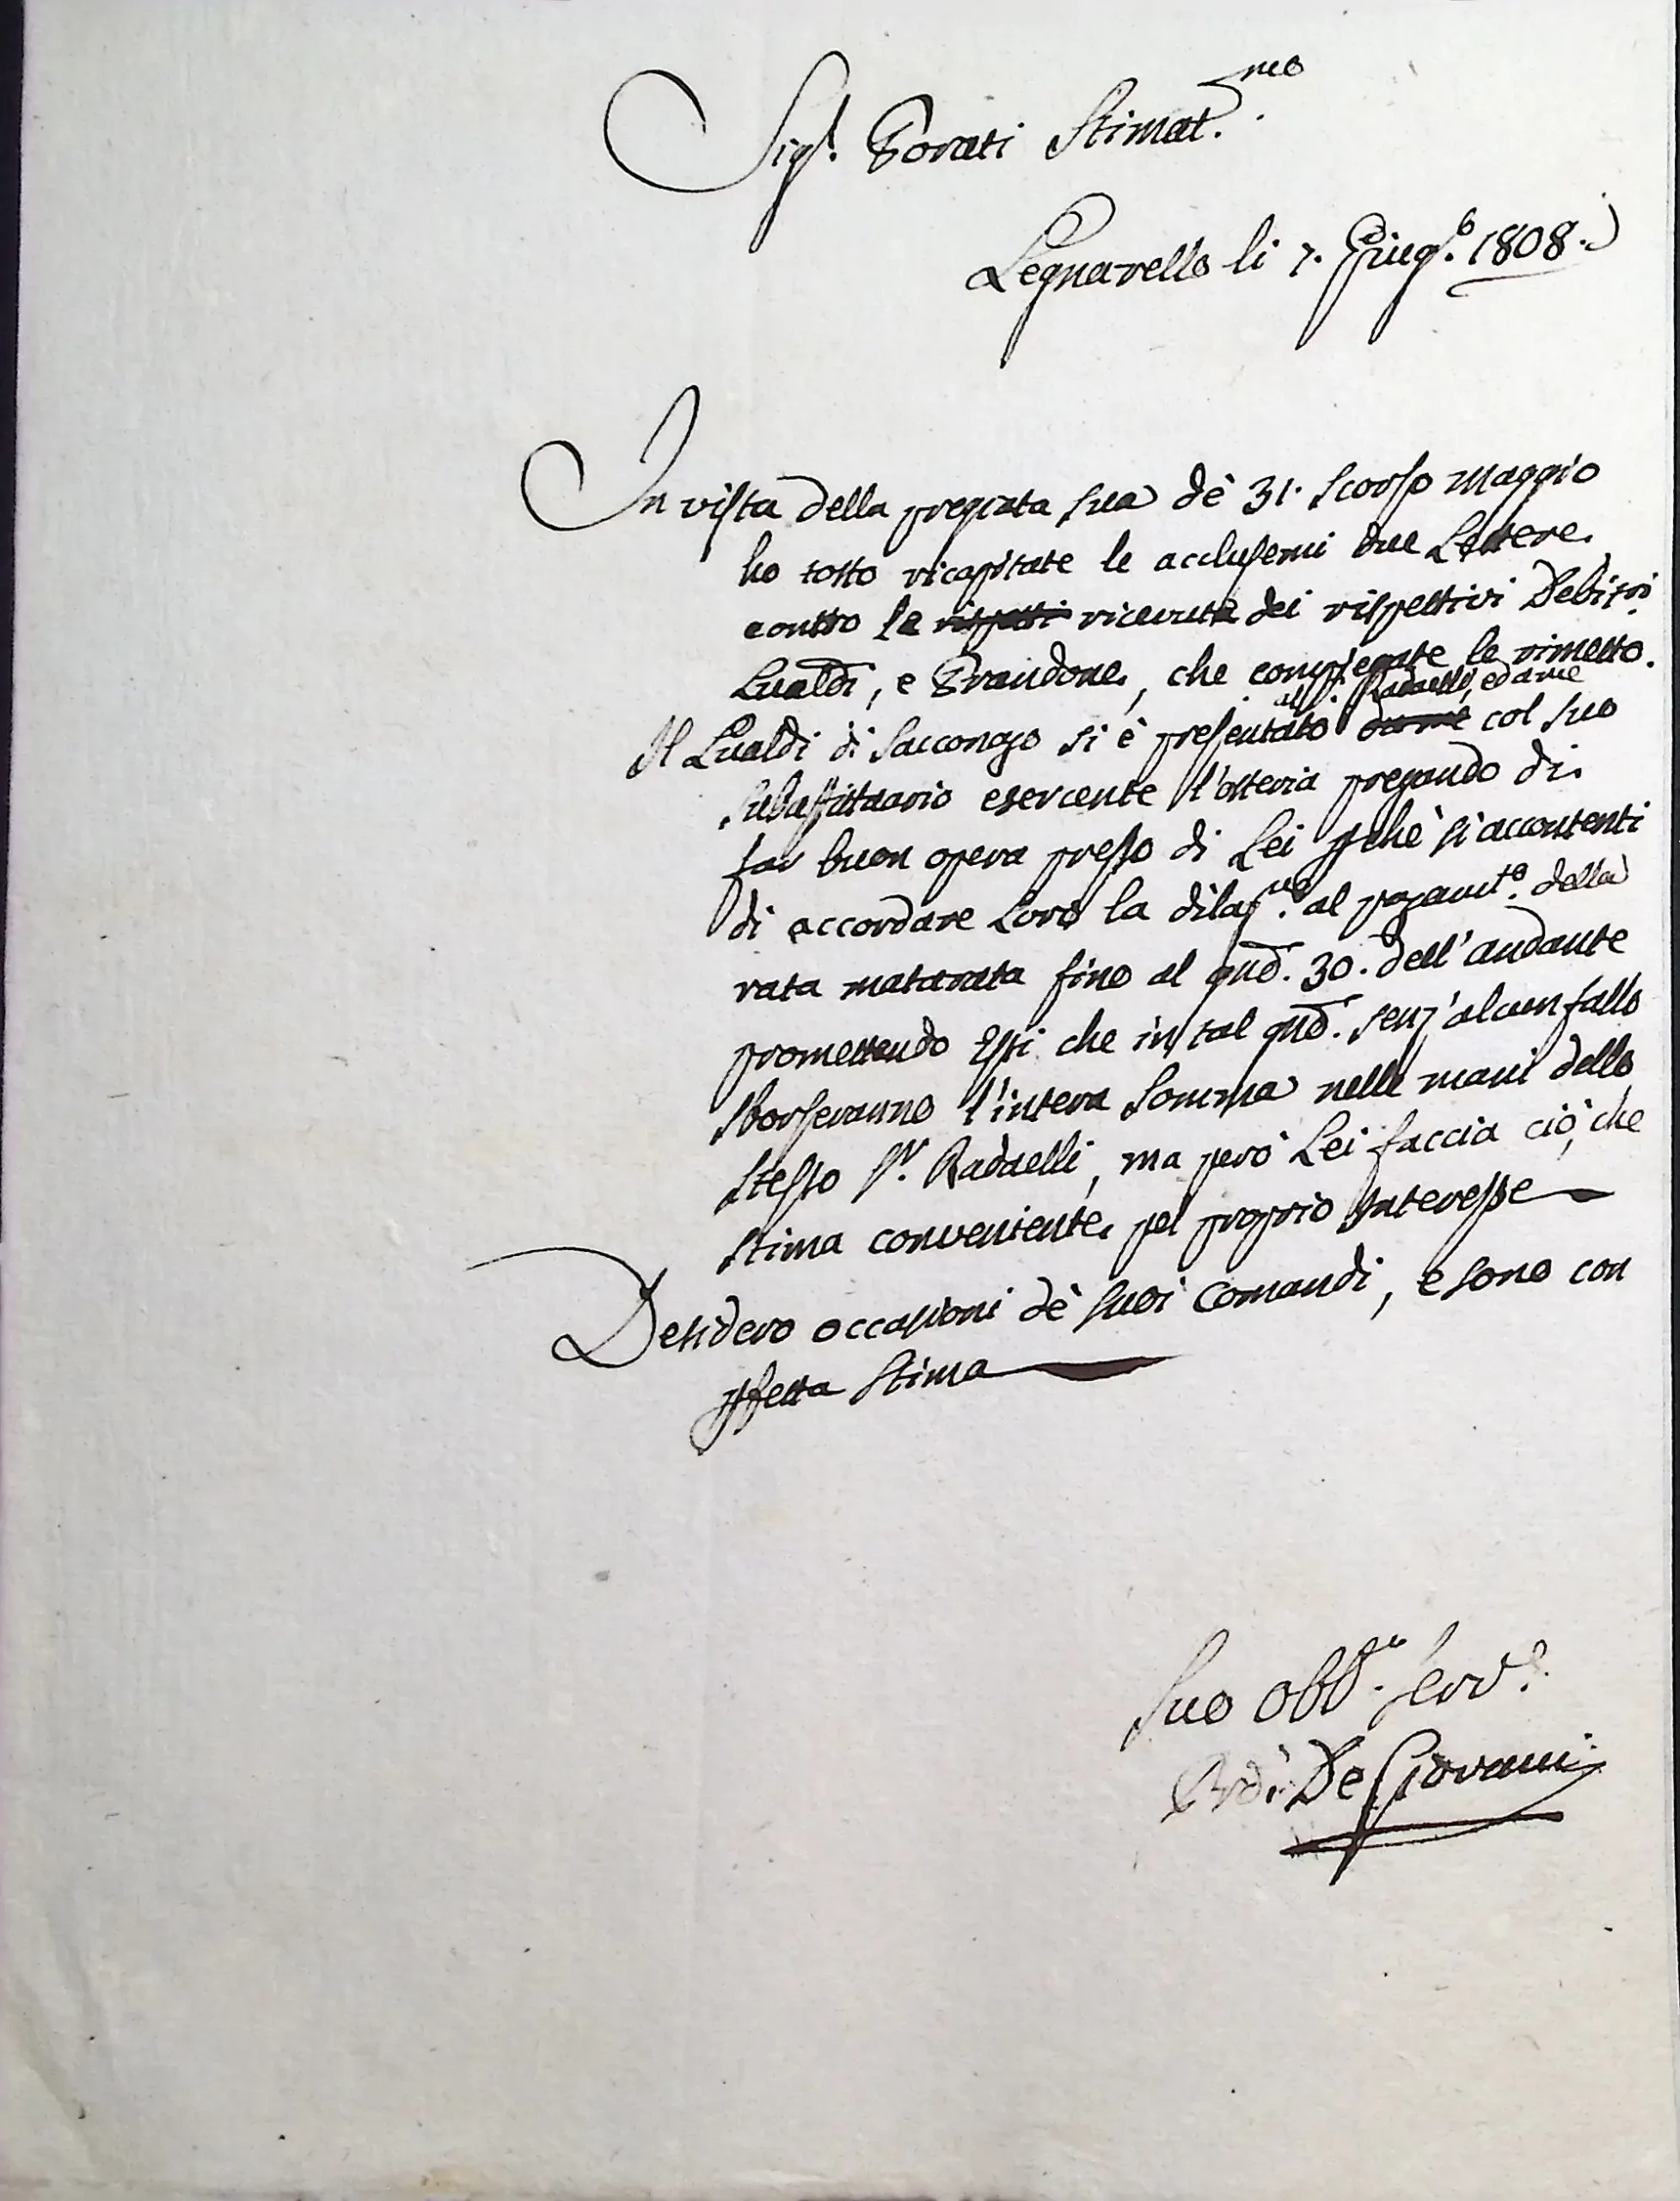 Sig.r Porati Stimat.mo
Legnarello li 7. Giug.o 1808.
In vista della pregiata sua dè 31. scorso Maggio
ho tosto ricapitate le acclusemi due Lettere
contro le rispetti ricevute dei rispettivi Debitori
Lualdi, e Brandone, che compiegate le rimetto.
al S.r Radaelli, ed a me
Il Lualdi di Sacconago si è presentato da me col suo
subaffittuario esercente l'osteria pregando di
far buon opera presso di Lei pchè si accontenti
di accordare Loro la dilaz.ne al pagamt.o della
rata maturata fino al gnd. 30. dell'andante
promettendo Essi che in tal gnd. senz'alcun fallo
sborseranno l'intera somma nelle mani dello
stesso S.r Radaelli, ma però Lei faccia ciò, che
stima conveniente pel proprio Interesse
Desidero occasioni dè suoi Comandi, e sono con
pfetta stima
Suo obb.o serv.e
De Giovanni